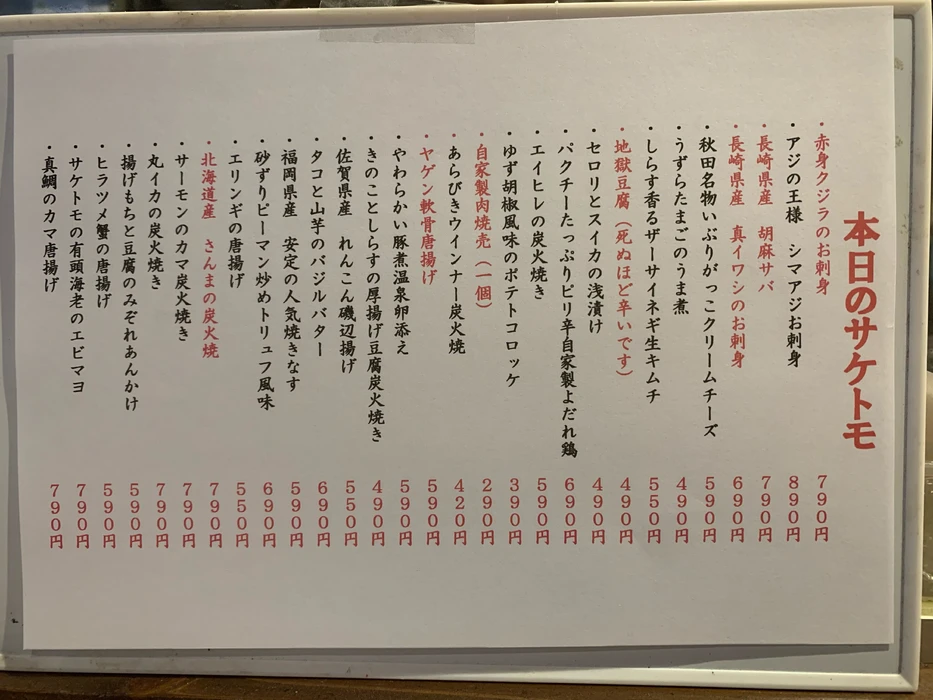 本日のサケトモ
・赤身クジラのお刺身 790円
・アジの王様 シマアジお刺身 890円
・長崎県産 胡麻サバ 790円
・長崎県産 真イワシのお刺身 690円
・秋田名物いぶりがっこクリームチーズ 590円
・うずらたまごのうま煮 490円
・しらす香るザーサイネギ生キムチ 550円
・地獄豆腐（死ぬほど辛いです） 490円
・セロリとスイカの浅漬け 490円
・パクチーたっぷりピリ辛自家製よだれ鶏 690円
・エイヒレの炭火焼き 590円
・ゆず胡椒風味のポテトコロッケ 390円
・自家製肉焼売（一個） 290円
・あらびきウインナー炭火焼 420円
・ヤゲン軟骨唐揚げ 590円
・やわらかい豚煮温泉卵添え 590円
・きのことしらすの厚揚げ豆腐炭火焼き 490円
・佐賀県産 れんこん磯辺揚げ 550円
・タコと山芋のバジルバター 690円
・福岡県産 安定の人気焼きなす 590円
・砂ずりピーマン炒めトリュフ風味 690円
・エリンギの唐揚げ 550円
・北海道産 さんまの炭火焼 790円
・サーモンのカマ炭火焼き 790円
・丸イカの炭火焼き 790円
・揚げもちと豆腐のみぞれあんかけ 590円
・ヒラツメ蟹の唐揚げ 590円
・サケトモの有頭海老のエビマヨ 790円
・真鯛のカマ唐揚げ 790円